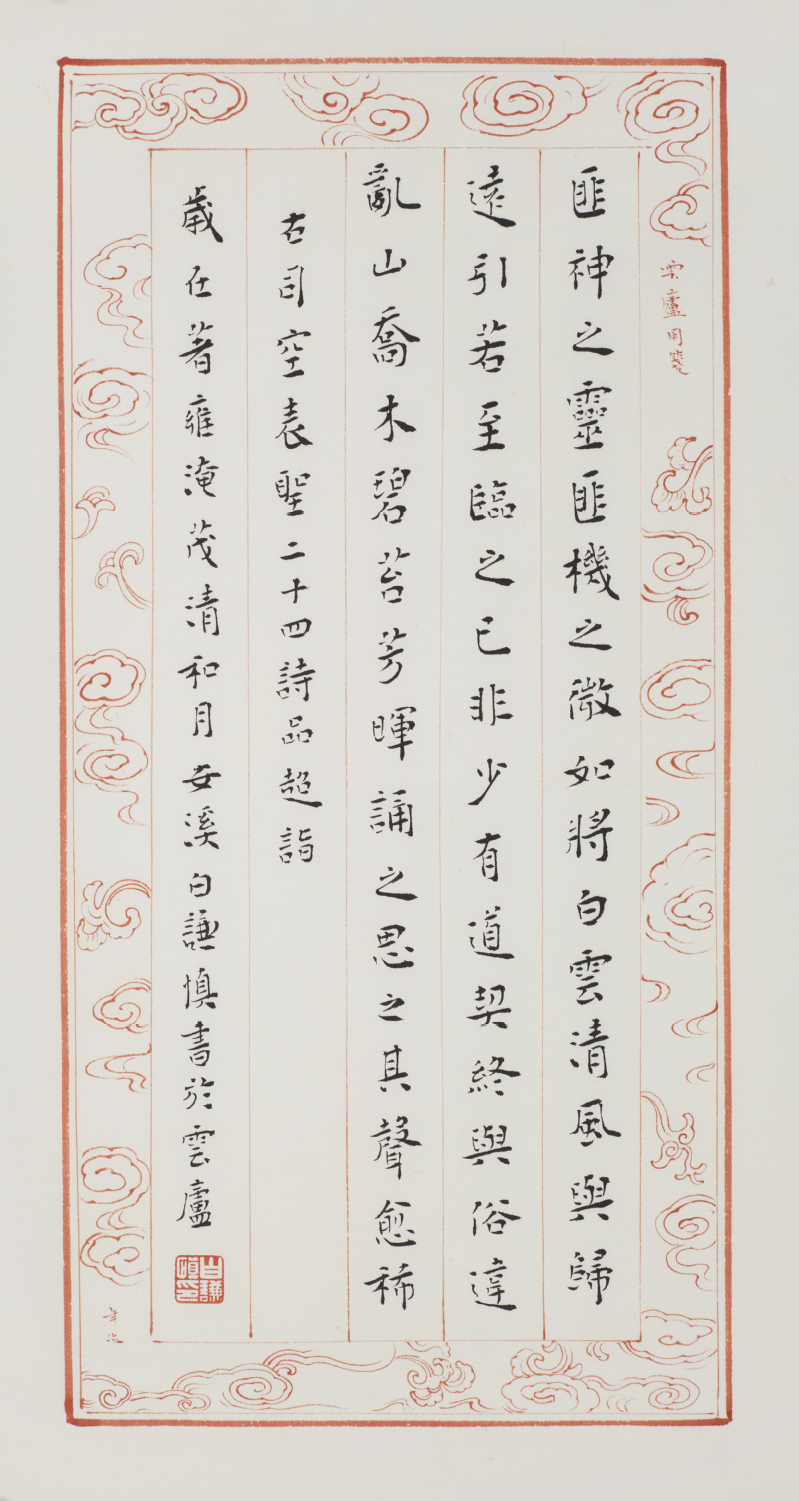 雲廬用箋
匪神之靈匪機之微如將白雲清風與歸
遠引若至臨之已非少有道契終與俗違
亂山喬木碧苔芳暉誦之思之其聲愈稀
右司空表聖二十四詩品超詣
歲在著雍淹茂清和月安溪白謙慎書於雲廬
白謙慎印